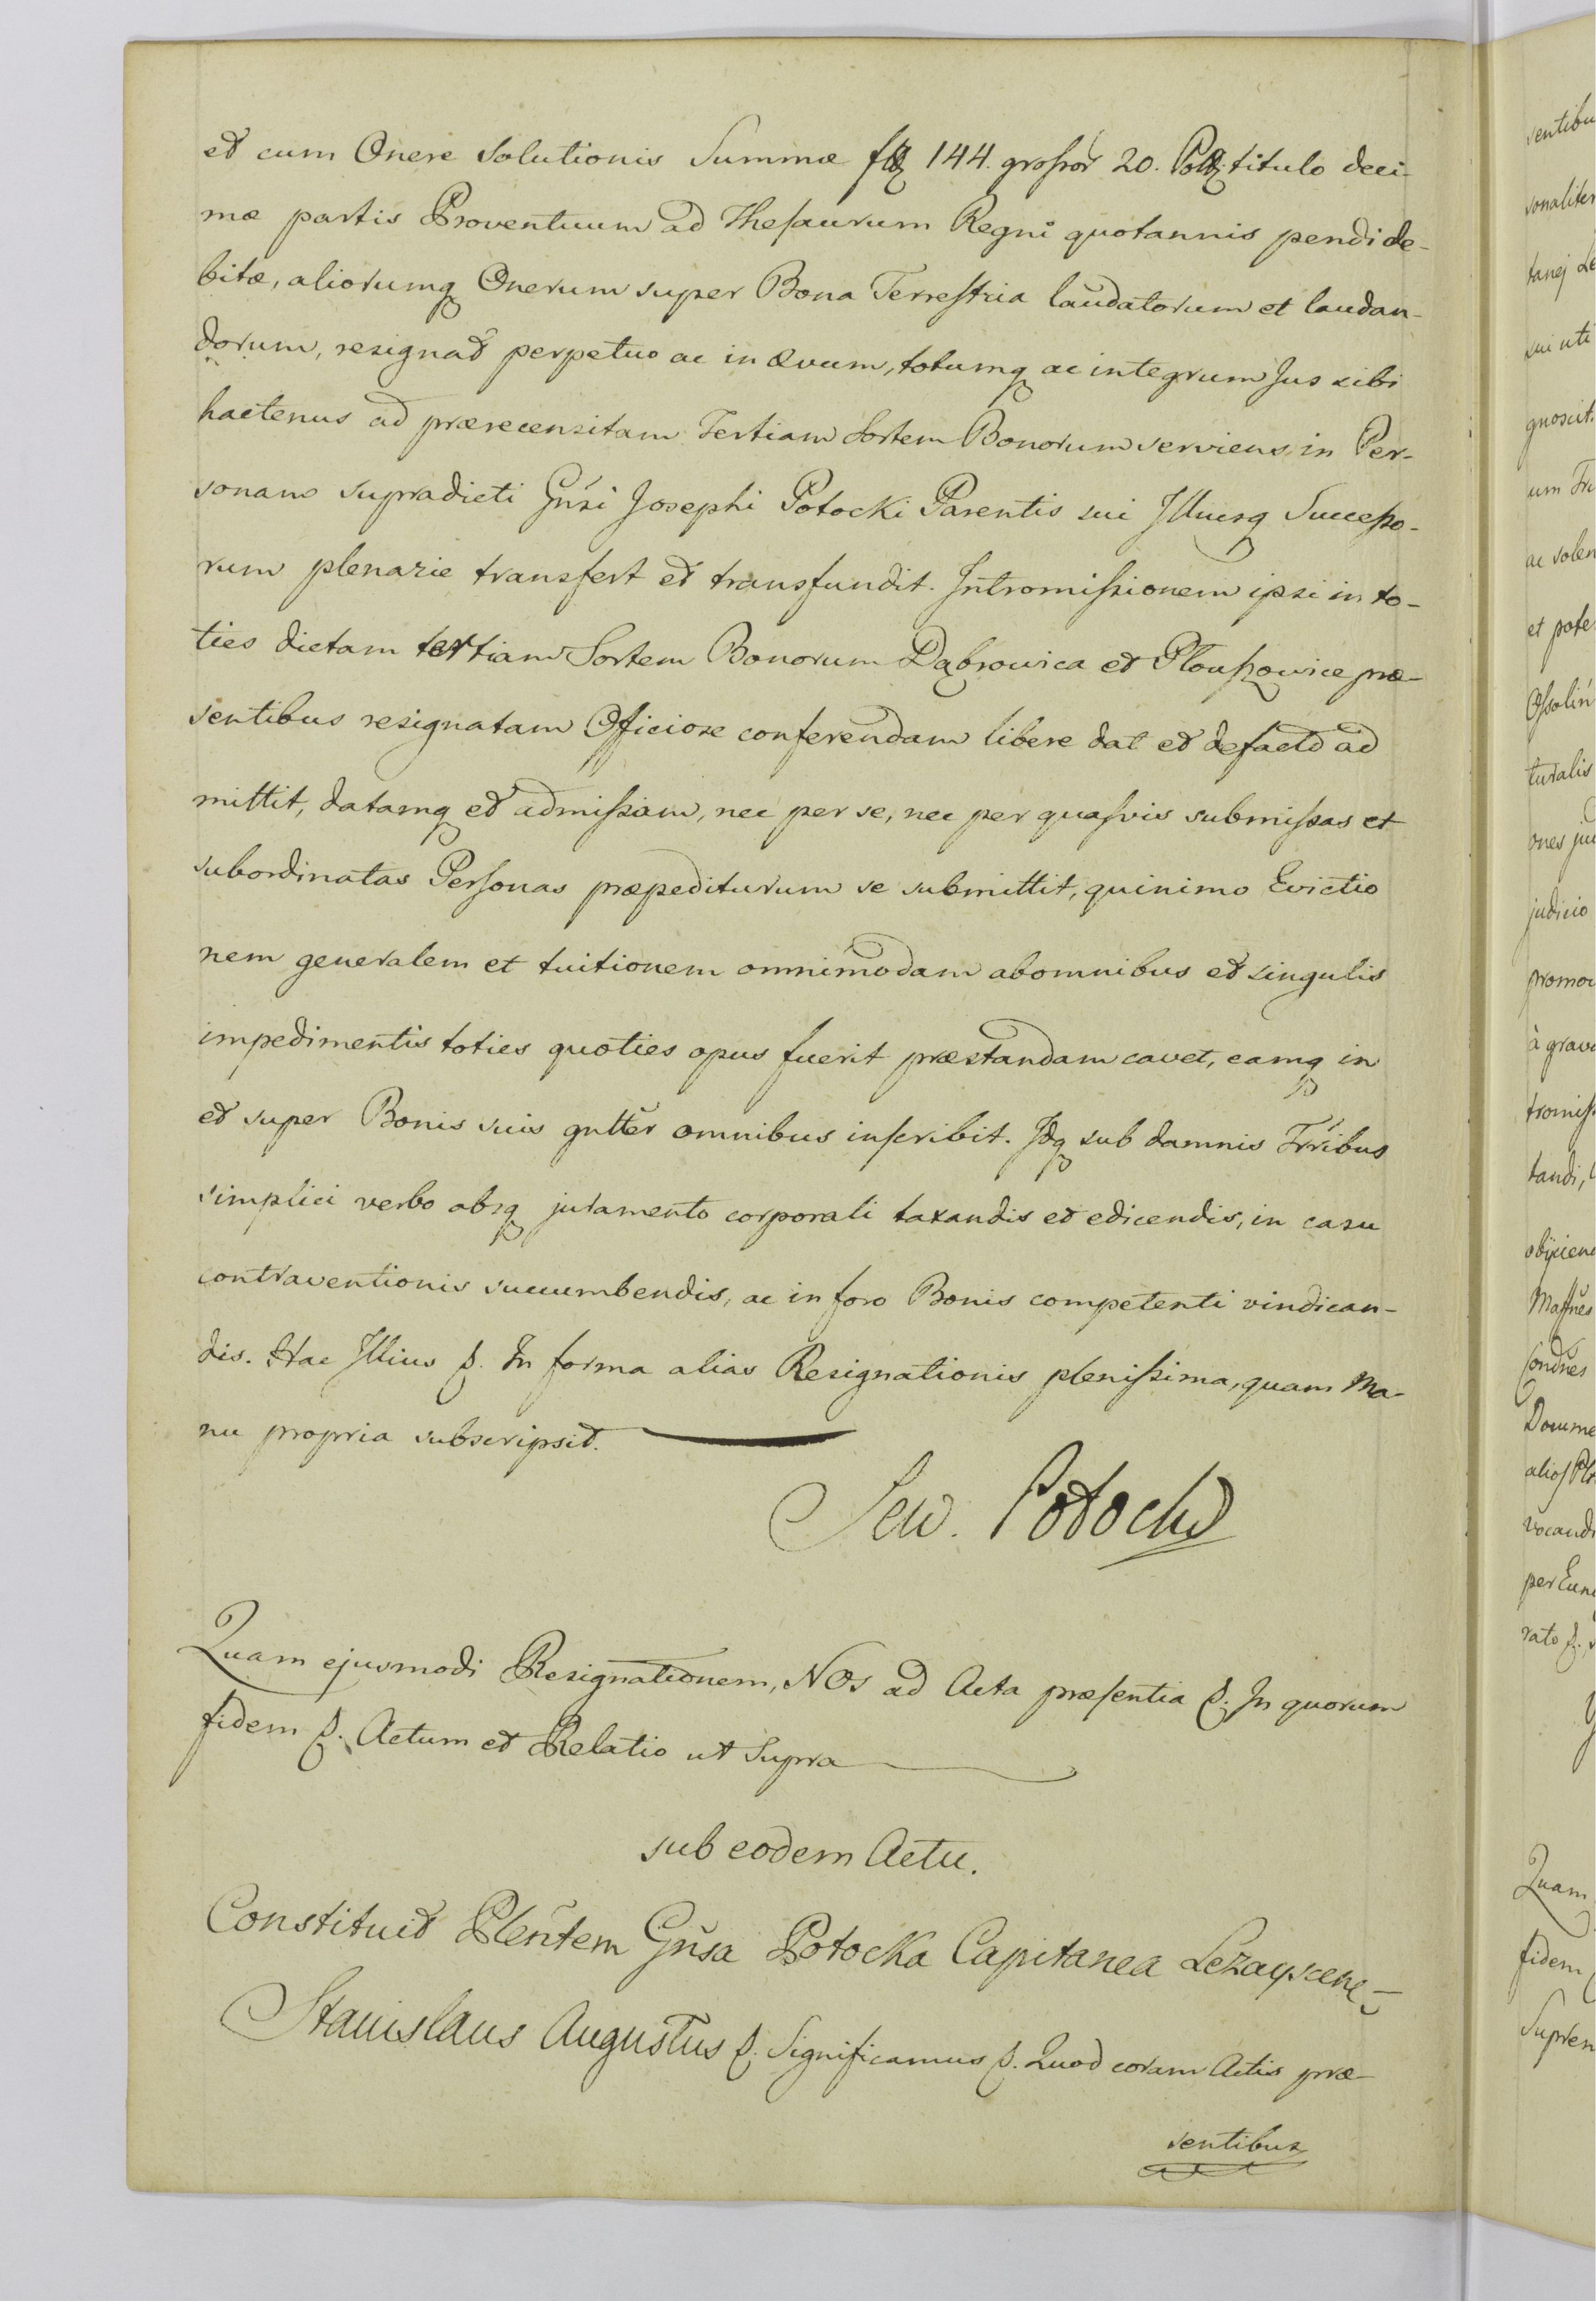 et cum Onere solutionis Summæ flor 144. grossor 20. Pollt titulo deci-
mæ partis Proventuum ad Thesaurum Regni quotannis pendi de-
bitæ, aliorumq Onerum super Bona Terrestria laudatorum et laudan-
dorum, resignat perpetuo ac in ævum, totumq ac integrum Jus sibi
hactenus ad prærecensitam Tertiam Sortem Bonorum serviens in Per-
sonam supradicti Gnsi Josephi Potocki Parentis sui Illiusq Successo-
rum plenarie transfert et transfundit. Intromissionem ipsi in to-
ties dictam tertiam Sortem Bonorum Dąbrowica et Płouszowice præ-
sentibus resignatam Officiose conferendam libere dat et defacto ad
mittit, datamq et admissam, nec per se, nec per quasvis submissas et
subordinatas Personas præpediturum se submittit, quinimo Evictio
nem generalem et tuitionem omnimodam ab omnibus et singulis
impedimentis toties quoties opus fuerit præstandam cavet, eamq in
et super Bonis suis gntter omnibus inscribit. Idq sub damnis Trribus
simplici verbo absq juramento corporali taxandis et edicendis, in casu
contraventionis succumbendis, ac in foro Bonis competenti vindican-
dis. Hac Illius p. In forma alias Resignationis plenissima, quam Ma-
nu propria subscripsit.
Sew. Potocki
Quam ejusmodi Resignationem, NOs ad Acta præsentia p. In quorum
fidem p. Actum et Relatio ut Supra
sub eodem Actu.
Constituit Plentem Gnsa Potocka Capitanea Lezayscen
Stanislaus Augustus p. Significamus p. Quod coram Actis præ-
sentibus